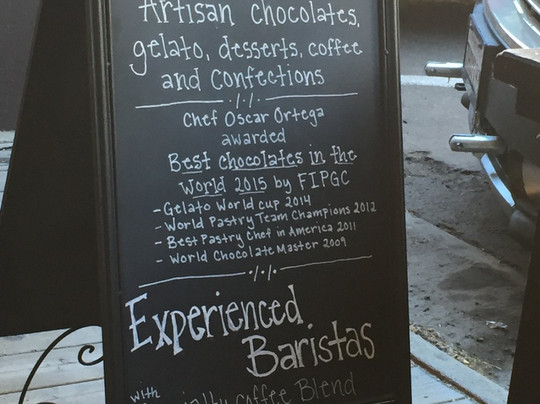 Artisan chocolates,
gelato, desserts, coffee
and confections
Chef Oscar Ortega
awarded
Best chocolates in the
World 2015 by FIPGC
- Gelato World cup 2014
- World Pastry Team Champions 2012
- Best Pastry Chef in America 2011
- World Chocolate Master 2009
Experienced
Baristas
with
coffee Blend